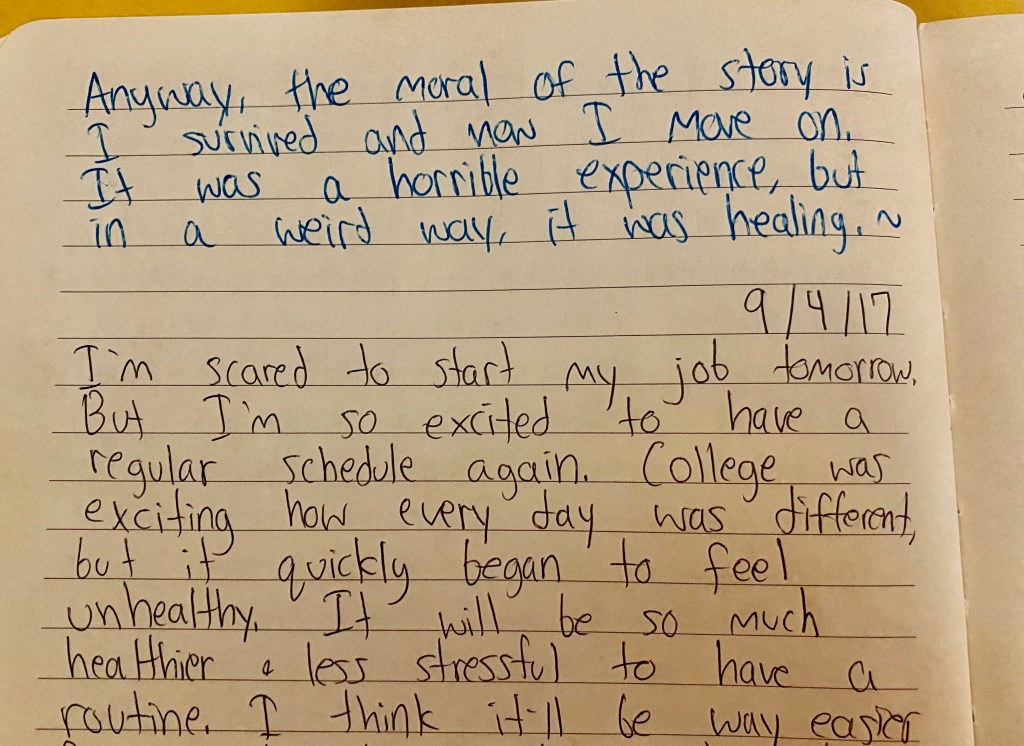 Anyway, the moral of the story is
I survived and now I move on.
It was a horrible experience, but
in a weird way, it was healing. ~
9/4/17
I'm scared to start my job tomorrow.
But I'm so excited to have a
regular schedule again. College was
exciting how every day was different,
but it quickly began to feel
unhealthy. It will be so much
healthier & less stressful to have a
routine. I think it'll be way easier